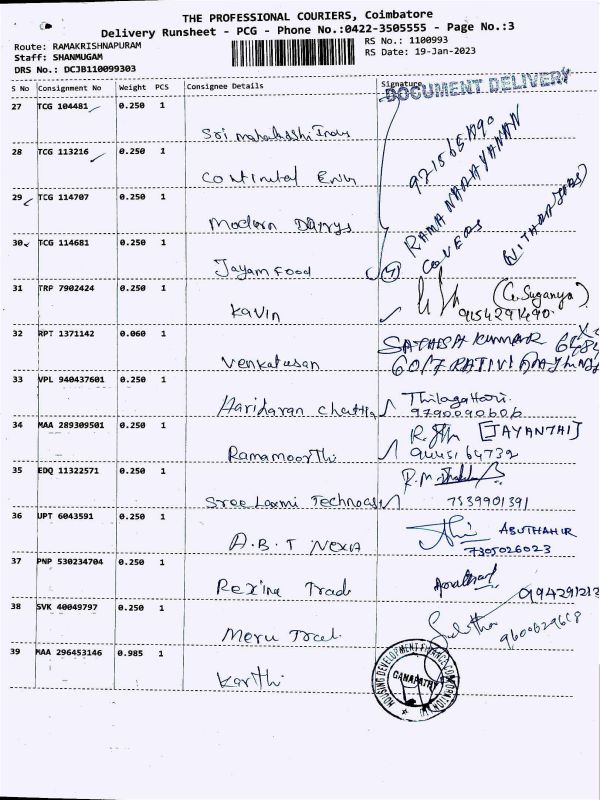 THE PROFESSIONAL COURIERS, Coimbatore
Delivery Runsheet - PCG - Phone No.:0422-3505555 - Page No.:3
Route: RAMAKRISHNAPURAM
RS No.: 1100993
Staff: SHANMUGAM
RS Date: 19-Jan-2023
DRS No.: DCJB110099303
S No Consignment No Weight PCS Consignee Details Signature
DOCUMENT DELIVERY
27 TCG 104481 0.250 1
28 TCG 113216 0.250 1
Continetal
29 TCG 114707 0.250 1
Modern Dairys
RAMANARAYANAN
30 TCG 114681 0.250 1
Jayam Food
COVERS
4
31 TRP 7902424 0.250 1
Kavin
(G. Suganya)
9154291490
32 RPT 1371142 0.060 1
Venkatasan
SATHISH KUMAR
33 VPL 940437601 0.250 1
Haridaran
9790090606
34 MAA 289309501 0.250 1
Ramamoorthi
[JAYANTHI]
9445164732
35 EDQ 11322571 0.250 1
Sree Laxmi
7539901391
36 UPT 6043591 0.250 1
A.B.T Nexa
ABUTHAHIR
7305026023
37 PNP 530234704 0.250 1
Rexine Trad
38 SVK 40049797 0.250 1
Meru Trad
9600629618
39 MAA 296453146 0.985 1
Karthi
HOUSING DEVELOPMENT FINANCE CORPORATION
GANAPATHY